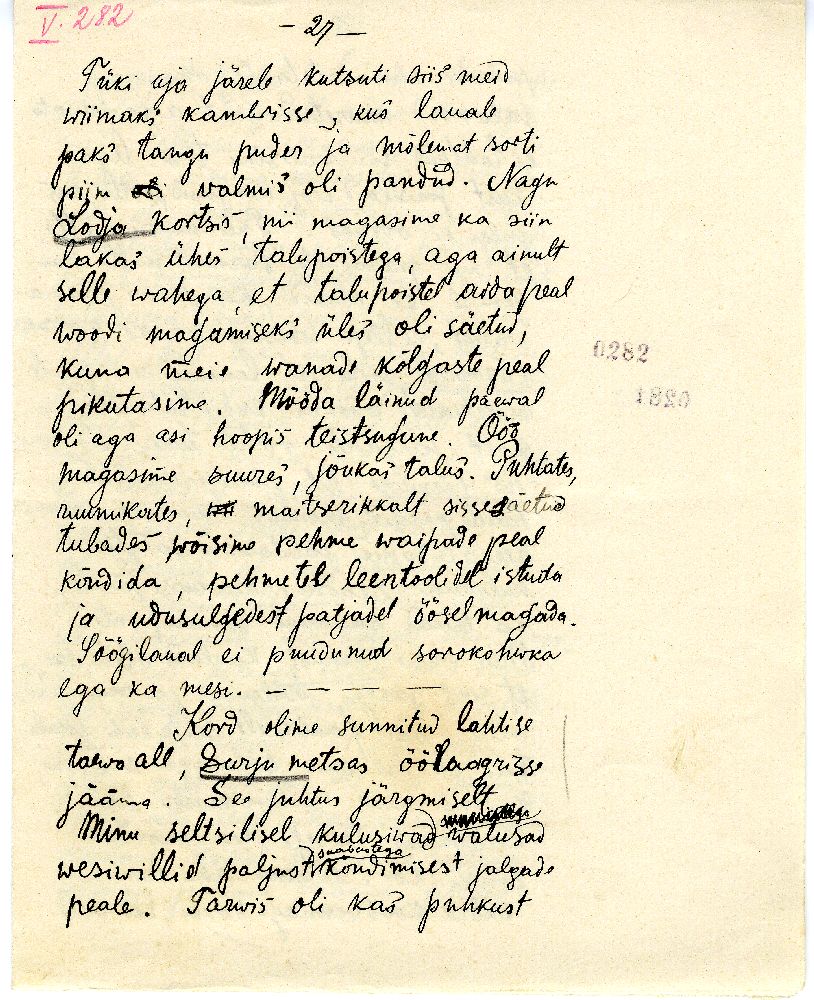 V. 282
— 27 —
Tüki aja järele kutsuti siis meid
wiimaks kambrisse, kus lauale
paks tangu puder ja mõlemat sorti
piim walmis oli pandud. Nagu
Lodja kortsis, nii magasime ka siin
lakas ühes talupoistega, aga ainult
selle wahega, et talupoistel aida peal
woodi magamiseks üles oli säetud,
kuna meie wanade kõlgaste peal
pikutasime. Mööda läinud päewal
oli aga asi hoopis teistsugune. Öö
magasime suures, jõukas talus. Puhtates,
rumikates, maitserikkalt sissesäetud
tubades wõisime pehme waipade peal
kõndida, pehmetel leentoolidel istuda
ja udusulgedest patjadel öösel magada.
Söögilaual ei puudunud sorokohwka
ega ka mesi. — — — —
Kord olime sunnitud lahtise
taewa all, Surju metsas öölaagrisse
jääma. See juhtus järgmiselt
Minu seltsilisel kulusiwad walusad
saabastega
wesiwillid paljust kõndimisest jalgade
peale. Tarwis oli kas puhkust
0282
0281